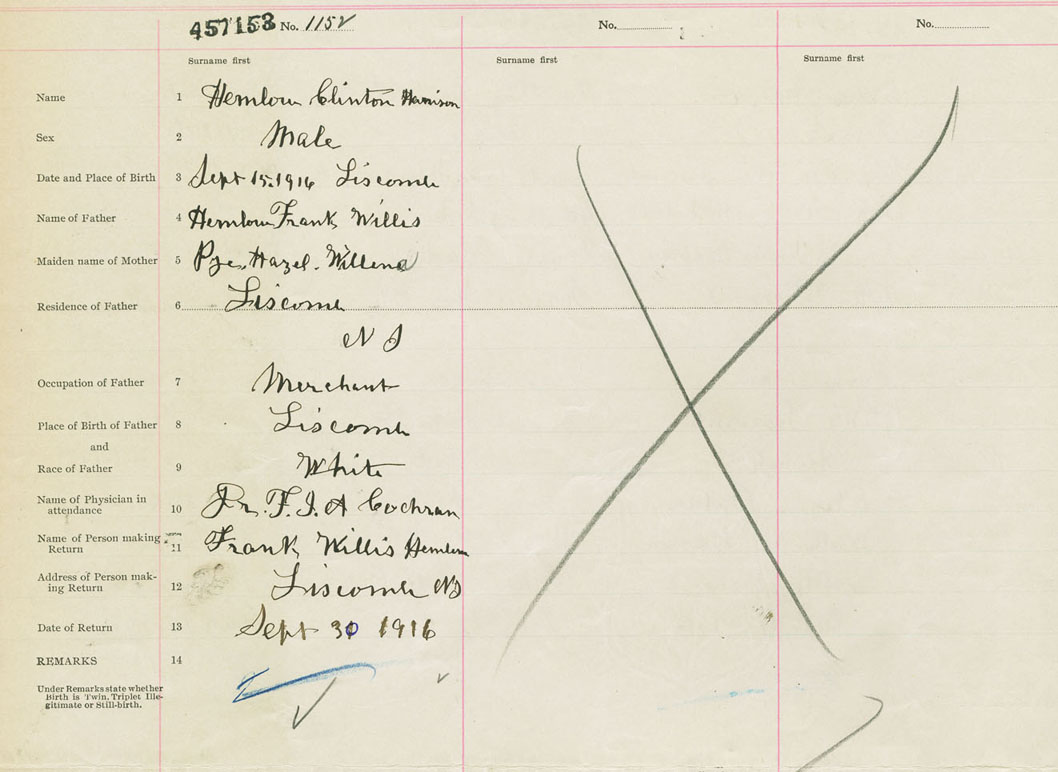 457153 No. 1152 No. No.
Surname first Surname first Surname first
Name 1 Hemlow Clinton Harrison
Sex 2 Male
Date and Place of Birth 3 Sept 15. 1916 Liscomb
Name of Father 4 Hemlow Frank Willis
Maiden name of Mother 5 Pye. Hazel. Willena
Residence of Father 6 Liscomb
N S
Occupation of Father 7 Merchant
Place of Birth of Father 8 Liscomb
and
Race of Father 9 White
Name of Physician in
attendance 10 Dr. F. I. A Cochran
Name of Person making
Return 11 Frank Willis Hemlow
Address of Person mak-
ing Return 12 Liscomb NS
Date of Return 13 Sept 30 1916
REMARKS 14
Under Remarks state whether
Birth is Twin, Triplet Ille-
gitimate or Still-birth.